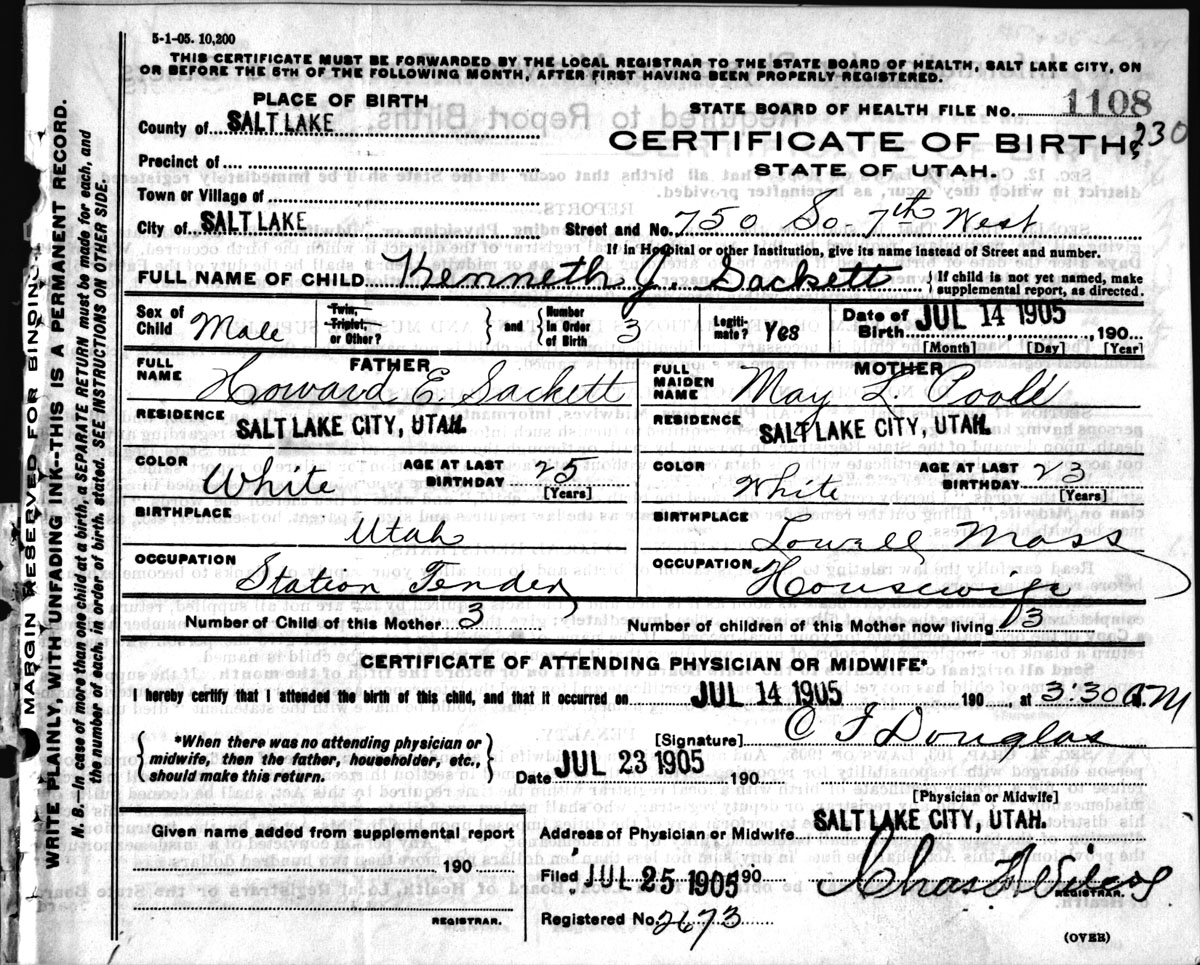 5-1-05. 10,200
THIS CERTIFICATE MUST BE FORWARDED BY THE LOCAL REGISTRAR TO THE STATE BOARD OF HEALTH, SALT LAKE CITY, ON
OR BEFORE THE 5TH OF THE FOLLOWING MONTH, AFTER FIRST HAVING BEEN PROPERLY REGISTERED.
PLACE OF BIRTH
STATE BOARD OF HEALTH FILE No. 1108
County of SALT LAKE
CERTIFICATE OF BIRTH
230
Precinct of
STATE OF UTAH.
Town or Village of
City of SALT LAKE
Street and No. 750 So 7th West
If in Hospital or other Institution, give its name instead of Street and number.
FULL NAME OF CHILD Kenneth J. Sackett
{If child is not yet named, make
supplemental report, as directed.
Sex of Child Male
Twin, Triplet, or Other?
and
Number in Order of Birth 3
Legiti-mate? Yes
Date of Birth JUL 14 1905 190
[Month] [Day] [Year]
FATHER
FULL NAME Howard E. Sackett
MOTHER
FULL MAIDEN NAME May L. Poole
RESIDENCE SALT LAKE CITY, UTAH.
RESIDENCE SALT LAKE CITY, UTAH.
COLOR White
AGE AT LAST BIRTHDAY 25
[Years]
COLOR White
AGE AT LAST BIRTHDAY 23
[Years]
BIRTHPLACE Utah
BIRTHPLACE Lowell Mass
OCCUPATION Station Tender
OCCUPATION Housewife
Number of Child of this Mother 3
Number of children of this Mother now living 3
CERTIFICATE OF ATTENDING PHYSICIAN OR MIDWIFE*
I hereby certify that I attended the birth of this child, and that it occurred on JUL 14 1905 190 , at 3:30 A M
{*When there was no attending physician or
midwife, then the father, householder, etc.,
should make this return.}
[Signature] C F Douglas
Date JUL 23 1905 190
[Physician or Midwife]
Given name added from supplemental report
190
REGISTRAR.
Address of Physician or Midwife SALT LAKE CITY, UTAH.
Filed JUL 25 1905 190
Chas F Wilcox
REGISTRAR.
Registered No. 2673
(OVER)
MARGIN RESERVED FOR BINDING.
WRITE PLAINLY, WITH UNFADING INK--THIS IS A PERMANENT RECORD.
N. B.—In case of more than one child at a birth, a SEPARATE RETURN must be made for each, and
the number of each, in order of birth, stated. SEE INSTRUCTIONS ON OTHER SIDE.